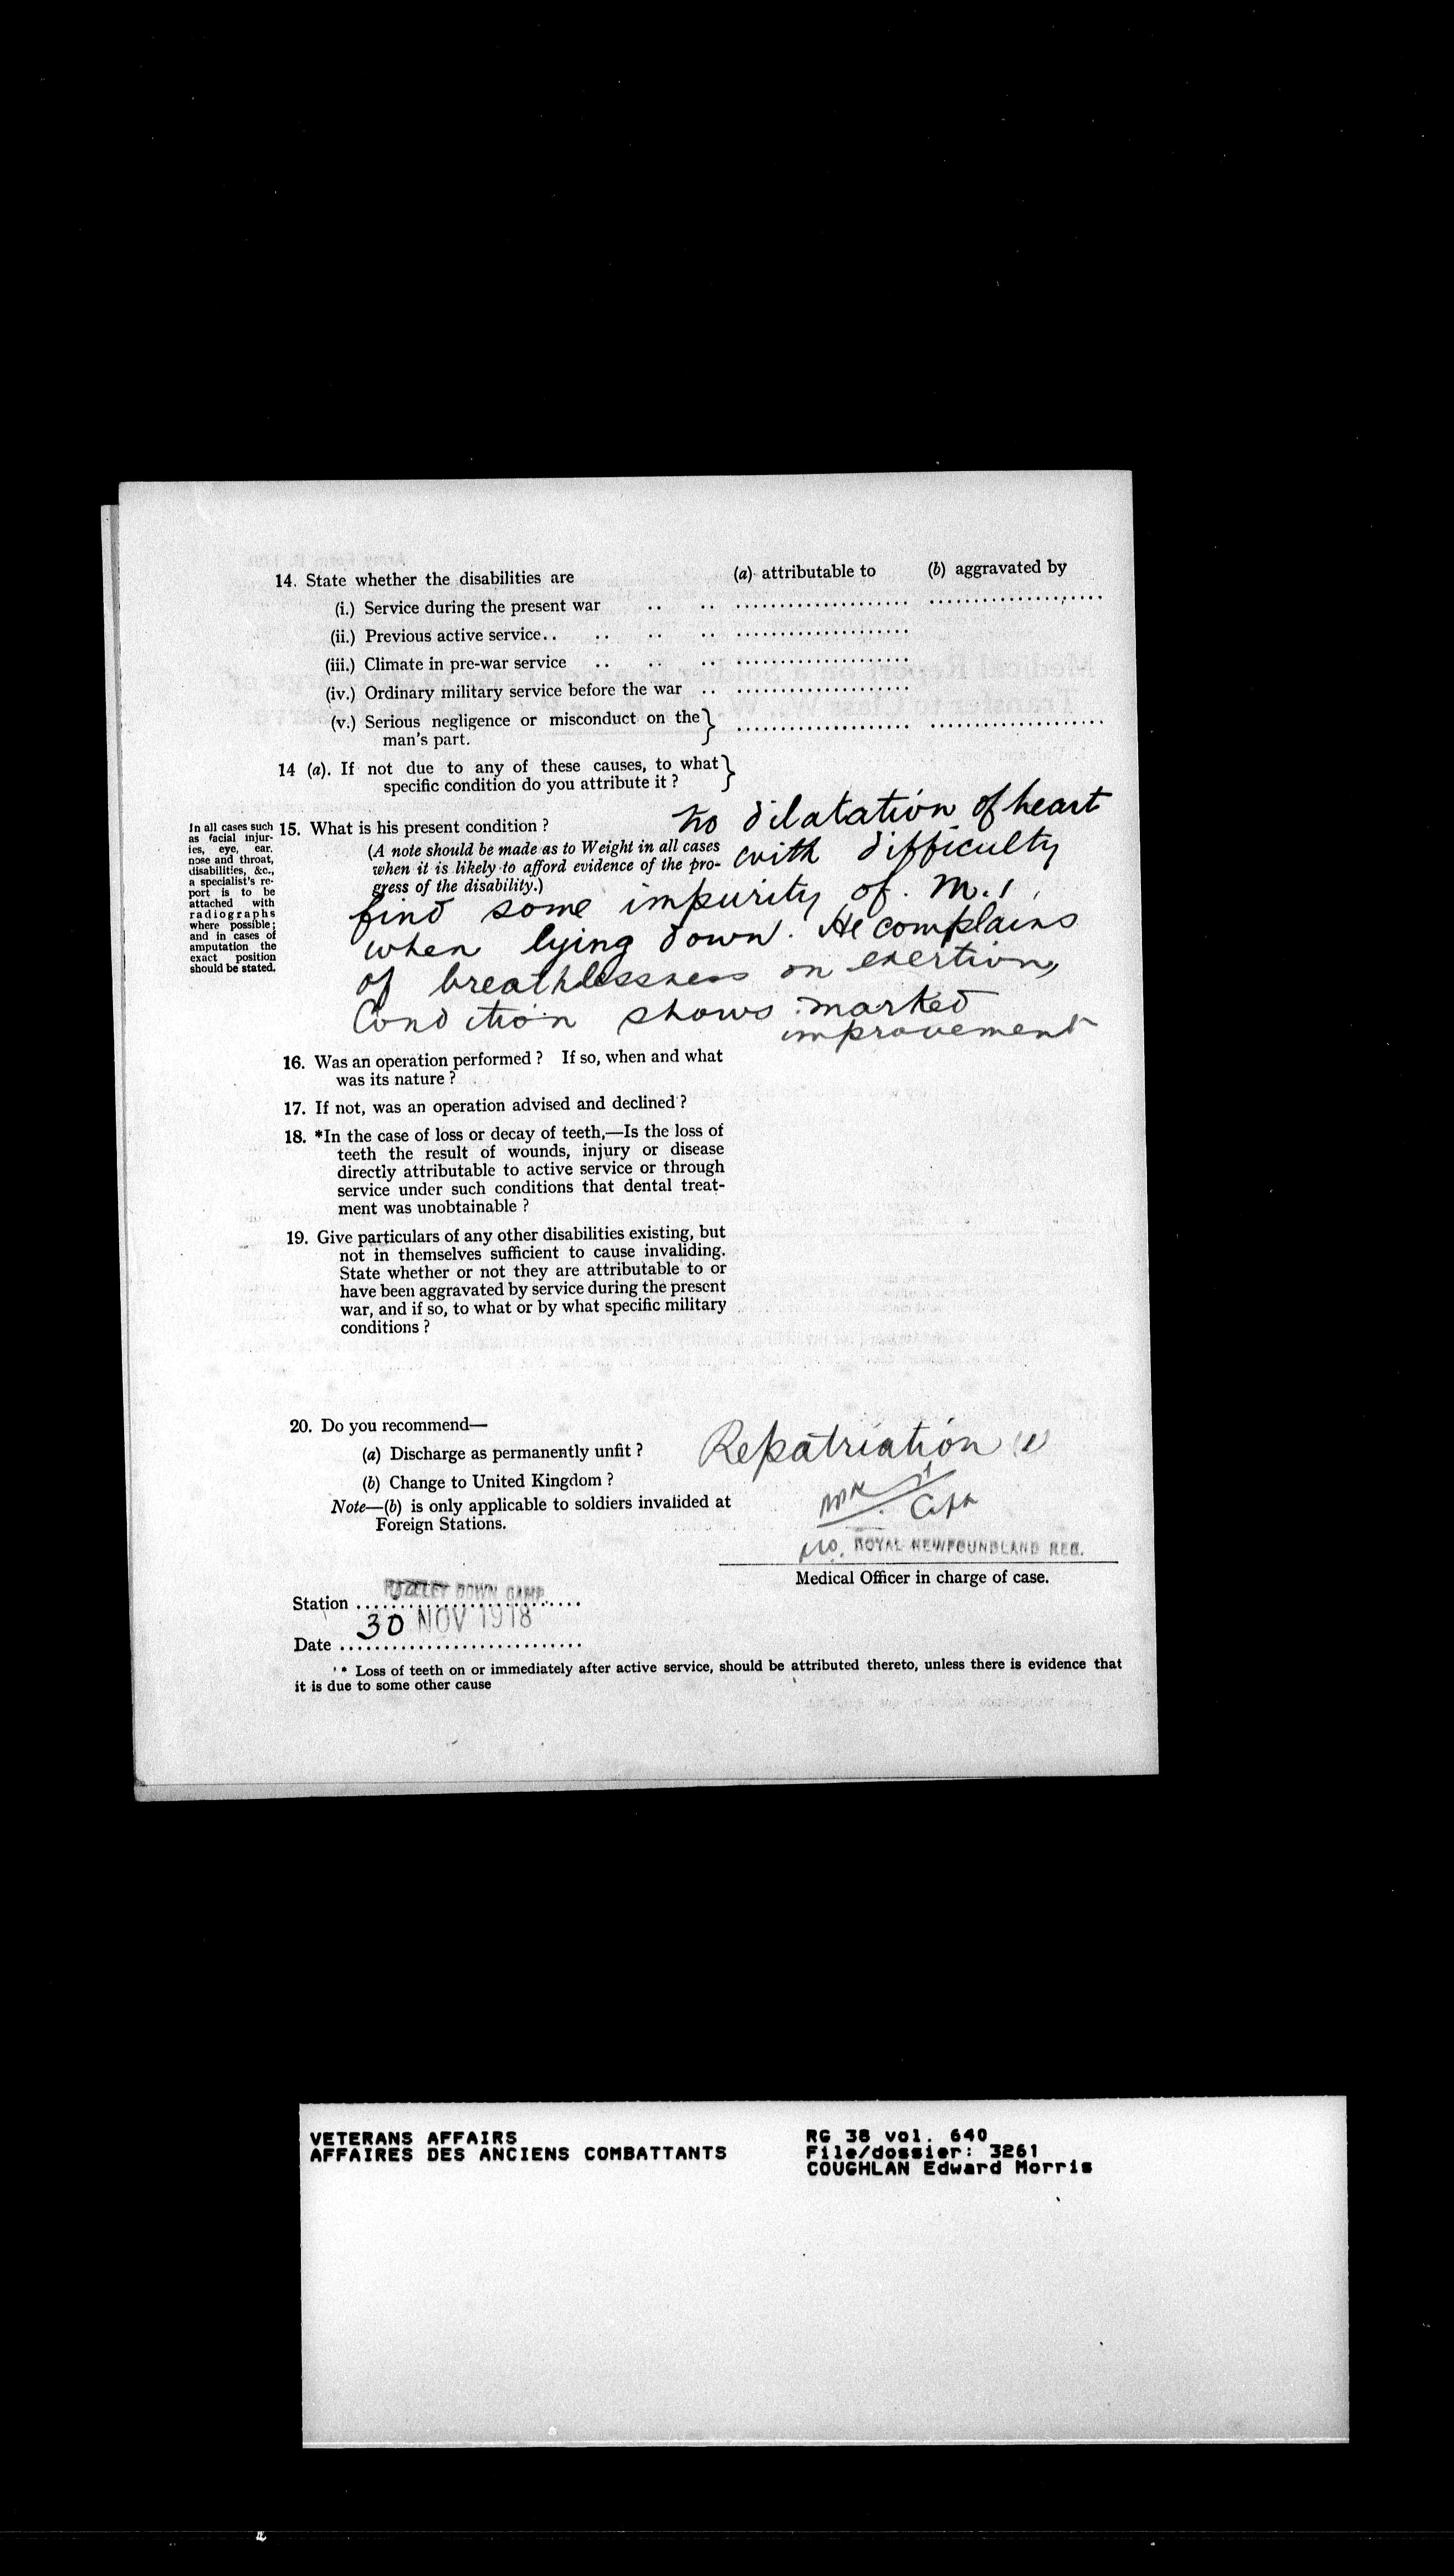 14. State whether the disabilities are (a) attributable to (b) aggravated by
(i.) Service during the present war
(ii.) Previous active service
(iii.) Climate in pre-war service
(iv.) Ordinary military service before the war
(v.) Serious negligence or misconduct on the
man's part.
14 (a). If not due to any of these causes, to what
specific condition do you attribute it ?
In all cases such
as facial injur-
ies, eye, ear.
nose and throat,
disabilities, &c.,
a specialist's re-
port is to be
attached with
radiographs
where possible;
and in cases of
amputation the
exact position
should be stated.
15. What is his present condition ? no dilatation of heart
(A note should be made as to Weight in all cases
when it is likely to afford evidence of the pro-
gress of the disability.)
with difficulty
find some impurity of M. 1,
when lying down. He complains
of breathlessness on exertion,
Condition shows marked
improvement
16. Was an operation performed ? If so, when and what
was its nature ?
17. If not, was an operation advised and declined ?
18. *In the case of loss or decay of teeth,—Is the loss of
teeth the result of wounds, injury or disease
directly attributable to active service or through
service under such conditions that dental treat-
ment was unobtainable ?
19. Give particulars of any other disabilities existing, but
not in themselves sufficient to cause invaliding.
State whether or not they are attributable to or
have been aggravated by service during the present
war, and if so, to what or by what specific military
conditions ?
20. Do you recommend—
(a) Discharge as permanently unfit ? Repatriation (1)
(b) Change to United Kingdom ?
Note—(b) is only applicable to soldiers invalided at
Foreign Stations.
Capt
M.O. ROYAL NEWFOUNDLAND REG.
Medical Officer in charge of case.
Station HAZELEY DOWN CAMP
Date 30 NOV 1918
* Loss of teeth on or immediately after active service, should be attributed thereto, unless there is evidence that
it is due to some other cause
VETERANS AFFAIRS
AFFAIRES DES ANCIENS COMBATTANTS
RG 38 vol. 640
File/dossier: 3261
COUGHLAN Edward Morris